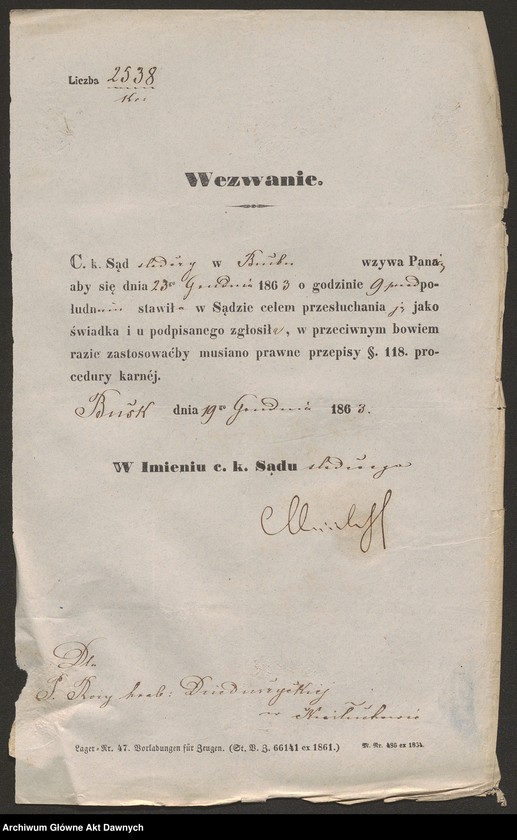 Liczba 2538
Wezwanie.
C. k. Sąd śledczy w Busku wzywa Panią
aby się dnia 23go Grudnia 1863 o godzinie 9 przedpo-
łudniem stawiła w Sądzie celem przesłuchania jej jako
świadka i u podpisanego zgłosiła, w przeciwnym bowiem
razie zastosowaćby musiano prawne przepisy §. 118. pro-
cedury karnéj.
Busk dnia 19go Grudnia 1863.
W Imieniu c. k. Sądu śledczego
Dla
P. Róży hrab: Dzieduszyckiej
w
Lager-Nr. 47. Vorladungen für Zeugen. (St. B. Z. 66141 ex 1861.) M. Nr. 486 ex 1854.
Archiwum Główne Akt Dawnych